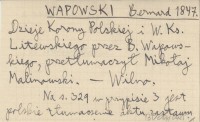 WAPOWSKI Bernard 1847.
Dzieje Korony Polskiej i W. Ks.
Litewskiego przez B. Wapows-
kiego, przetłumaczył Mikołaj
Malinowski. — Wilno.
Na s. 329 w przypisie 3 jest
polskie tłumaczenie listu